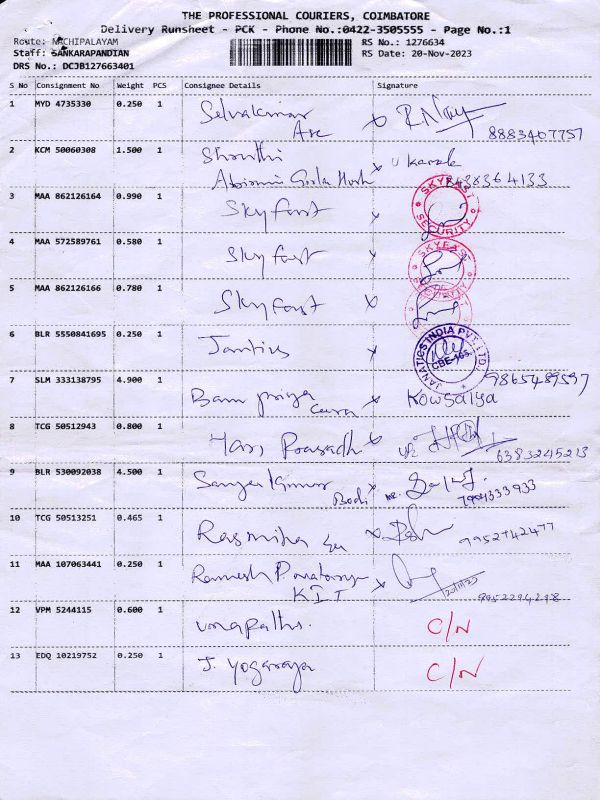 THE PROFESSIONAL COURIERS, COIMBATORE
Delivery Runsheet - PCK - Phone No.:0422-3505555 - Page No.:1
Route: NACHIPALAYAM RS No.: 1276634
Staff: SANKARAPANDIAN RS Date: 20-Nov-2023
DRS No.: DCJB127663401
S No Consignment No Weight PCS Consignee Details Signature
1 MYD 4735330 0.250 1 Selvakumar
8883407757
2 KCM 50060308 1.500 1
3 MAA 862126164 0.990 1 Sky fast SKYFAST SECURITY
4 MAA 572589761 0.580 1 Sky fast SKYFAST
5 MAA 862126166 0.780 1 Sky fast
6 BLR 5550841695 0.250 1 JANATICS INDIA PVT. LTD. CBE-105.
7 SLM 333138795 4.900 1 Kowsalya 9865489597
8 TCG 50512943 0.800 1 Hari Prasadh 6383245213
9 BLR 530092038 4.500 1 Sanjay Kumar
10 TCG 50513251 0.465 1 9952742477
11 MAA 107063441 0.250 1 Ramesh
KIT 20/11/23 9952294298
12 VPM 5244115 0.600 1 C/N
13 EDQ 10219752 0.250 1 J. Yogaraja C/N